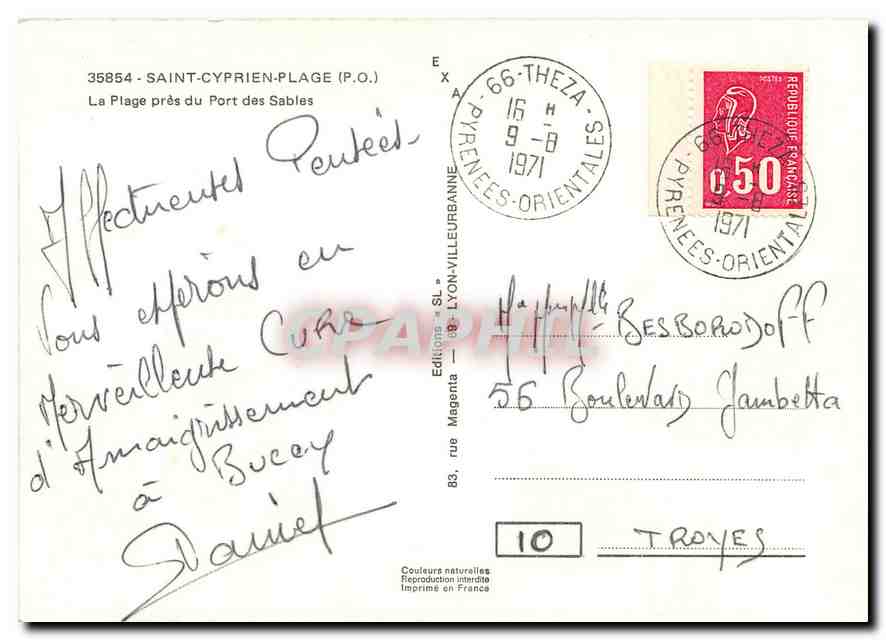 35854 - SAINT-CYPRIEN-PLAGE (P.O.)
La Plage près du Port des Sables
Affectueuses Pensées
Vous espérons en
Merveilleuse Cure
d'Amaigrissement
à Bucey
Daniel
EXA
Editions « SL »
83, rue Magenta — 69 - LYON-VILLEURBANNE
66-THEZA-
16 H
9-8
1971
PYRENEES-ORIENTALES
POSTES
REPUBLIQUE FRANÇAISE
0,50
66-THEZA-
9-8
1971
PYRENEES-ORIENTALES
CPAPHIL
BESBORODOFF
56 Boulevard Gambetta
10 TROYES
Couleurs naturelles
Reproduction interdite
Imprimé en France